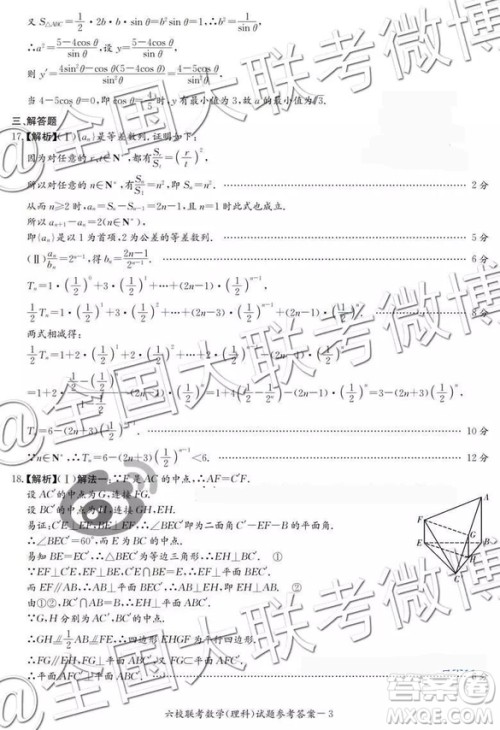 又 S△ABC=1/2·2b·b·sinθ=b²sinθ=1,∴b²=1/sinθ,
∴a²=(5-4cosθ)/sinθ,设 y=(5-4cosθ)/sinθ,
则 y'=(4sin²θ-cosθ(5-4cosθ))/sin²θ=(4-5cosθ)/sin²θ,
当 4-5cosθ=0,即 cosθ=4/5时,y有最小值为3,故a的最小值为√3.
三、解答题
17.【解析】(Ⅰ){aₙ}是等差数列.证明如下:
因为对任意的 r,t∈N*,都有Sᵣ/Sₜ=(r/t)²,
所以对任意的 n∈N*,有Sₙ/S₁=n²,即 Sₙ=n². 2分
从而 n≥2时,aₙ=Sₙ-Sₙ₋₁=2n-1,且 n=1时此式也成立.
所以 aₙ₊₁-aₙ=2(n∈N*),
即{aₙ}是以1为首项,2为公差的等差数列. 5分
(Ⅱ)aₙ/bₙ=2ⁿ⁻¹,得 bₙ=(2n-1)/2ⁿ⁻¹ 6分
Tₙ=1·(1/2)⁰+3·(1/2)¹+…+(2n-1)·(1/2)ⁿ⁻¹,
1/2Tₙ=1·(1/2)¹+3·(1/2)²+…+(2n-3)·(1/2)ⁿ⁻¹+(2n-1)·(1/2)ⁿ. 8分
两式相减得:
1/2Tₙ=1+2·(1/2)¹+2·(1/2)²+…+2·(1/2)ⁿ⁻¹-(2n-1)·(1/2)ⁿ
=1+2· -(2n-1)·(1/2)ⁿ=3-(2n+3)(1/2)ⁿ,
Tₙ=6-(2n+3)(1/2)ⁿ⁻¹ 10分
∵n∈N*,∴Tₙ=6-(2n+3)(1/2)ⁿ⁻¹<6. 12分
18.【解析】(Ⅰ)解法一:∵F是AC的中点,∴AF=C'F.
设AC'的中点为G,连接FG.
设BC'的中点为H,连接GH,EH.
易证:C'E⊥EF,BE⊥EF,∴∠BEC'即为二面角C'-EF-B的平面角.
∴∠BEC'=60°,而E为BC的中点.
易知BE=EC',∴△BEC'为等边三角形,∴EH⊥BC'. ①
∵EF⊥C'E,EF⊥BE,C'E∩BE=E,∴EF⊥平面BEC'.
而EF∥AB,∴AB⊥平面BEC',∴AB⊥EH,即EH⊥AB. ②
由①②,BC'∩AB=B,∴EH⊥平面ABC'.
∵G,H分别为AC',BC'的中点.
∴GH∥=1/2AB∥=FE,∴四边形EHGF为平行四边形.
∴FG∥EH,FG⊥平面ABC',又FG⊂平面AFC'.
∴平面AFC'⊥平面ABC'. 6分
F
A
G
E
B
H
C'
六校联考数学(理科)试题参考答案-3
@全国大联考微博
@全国大联考微博
@全国大联考微博
作业帮